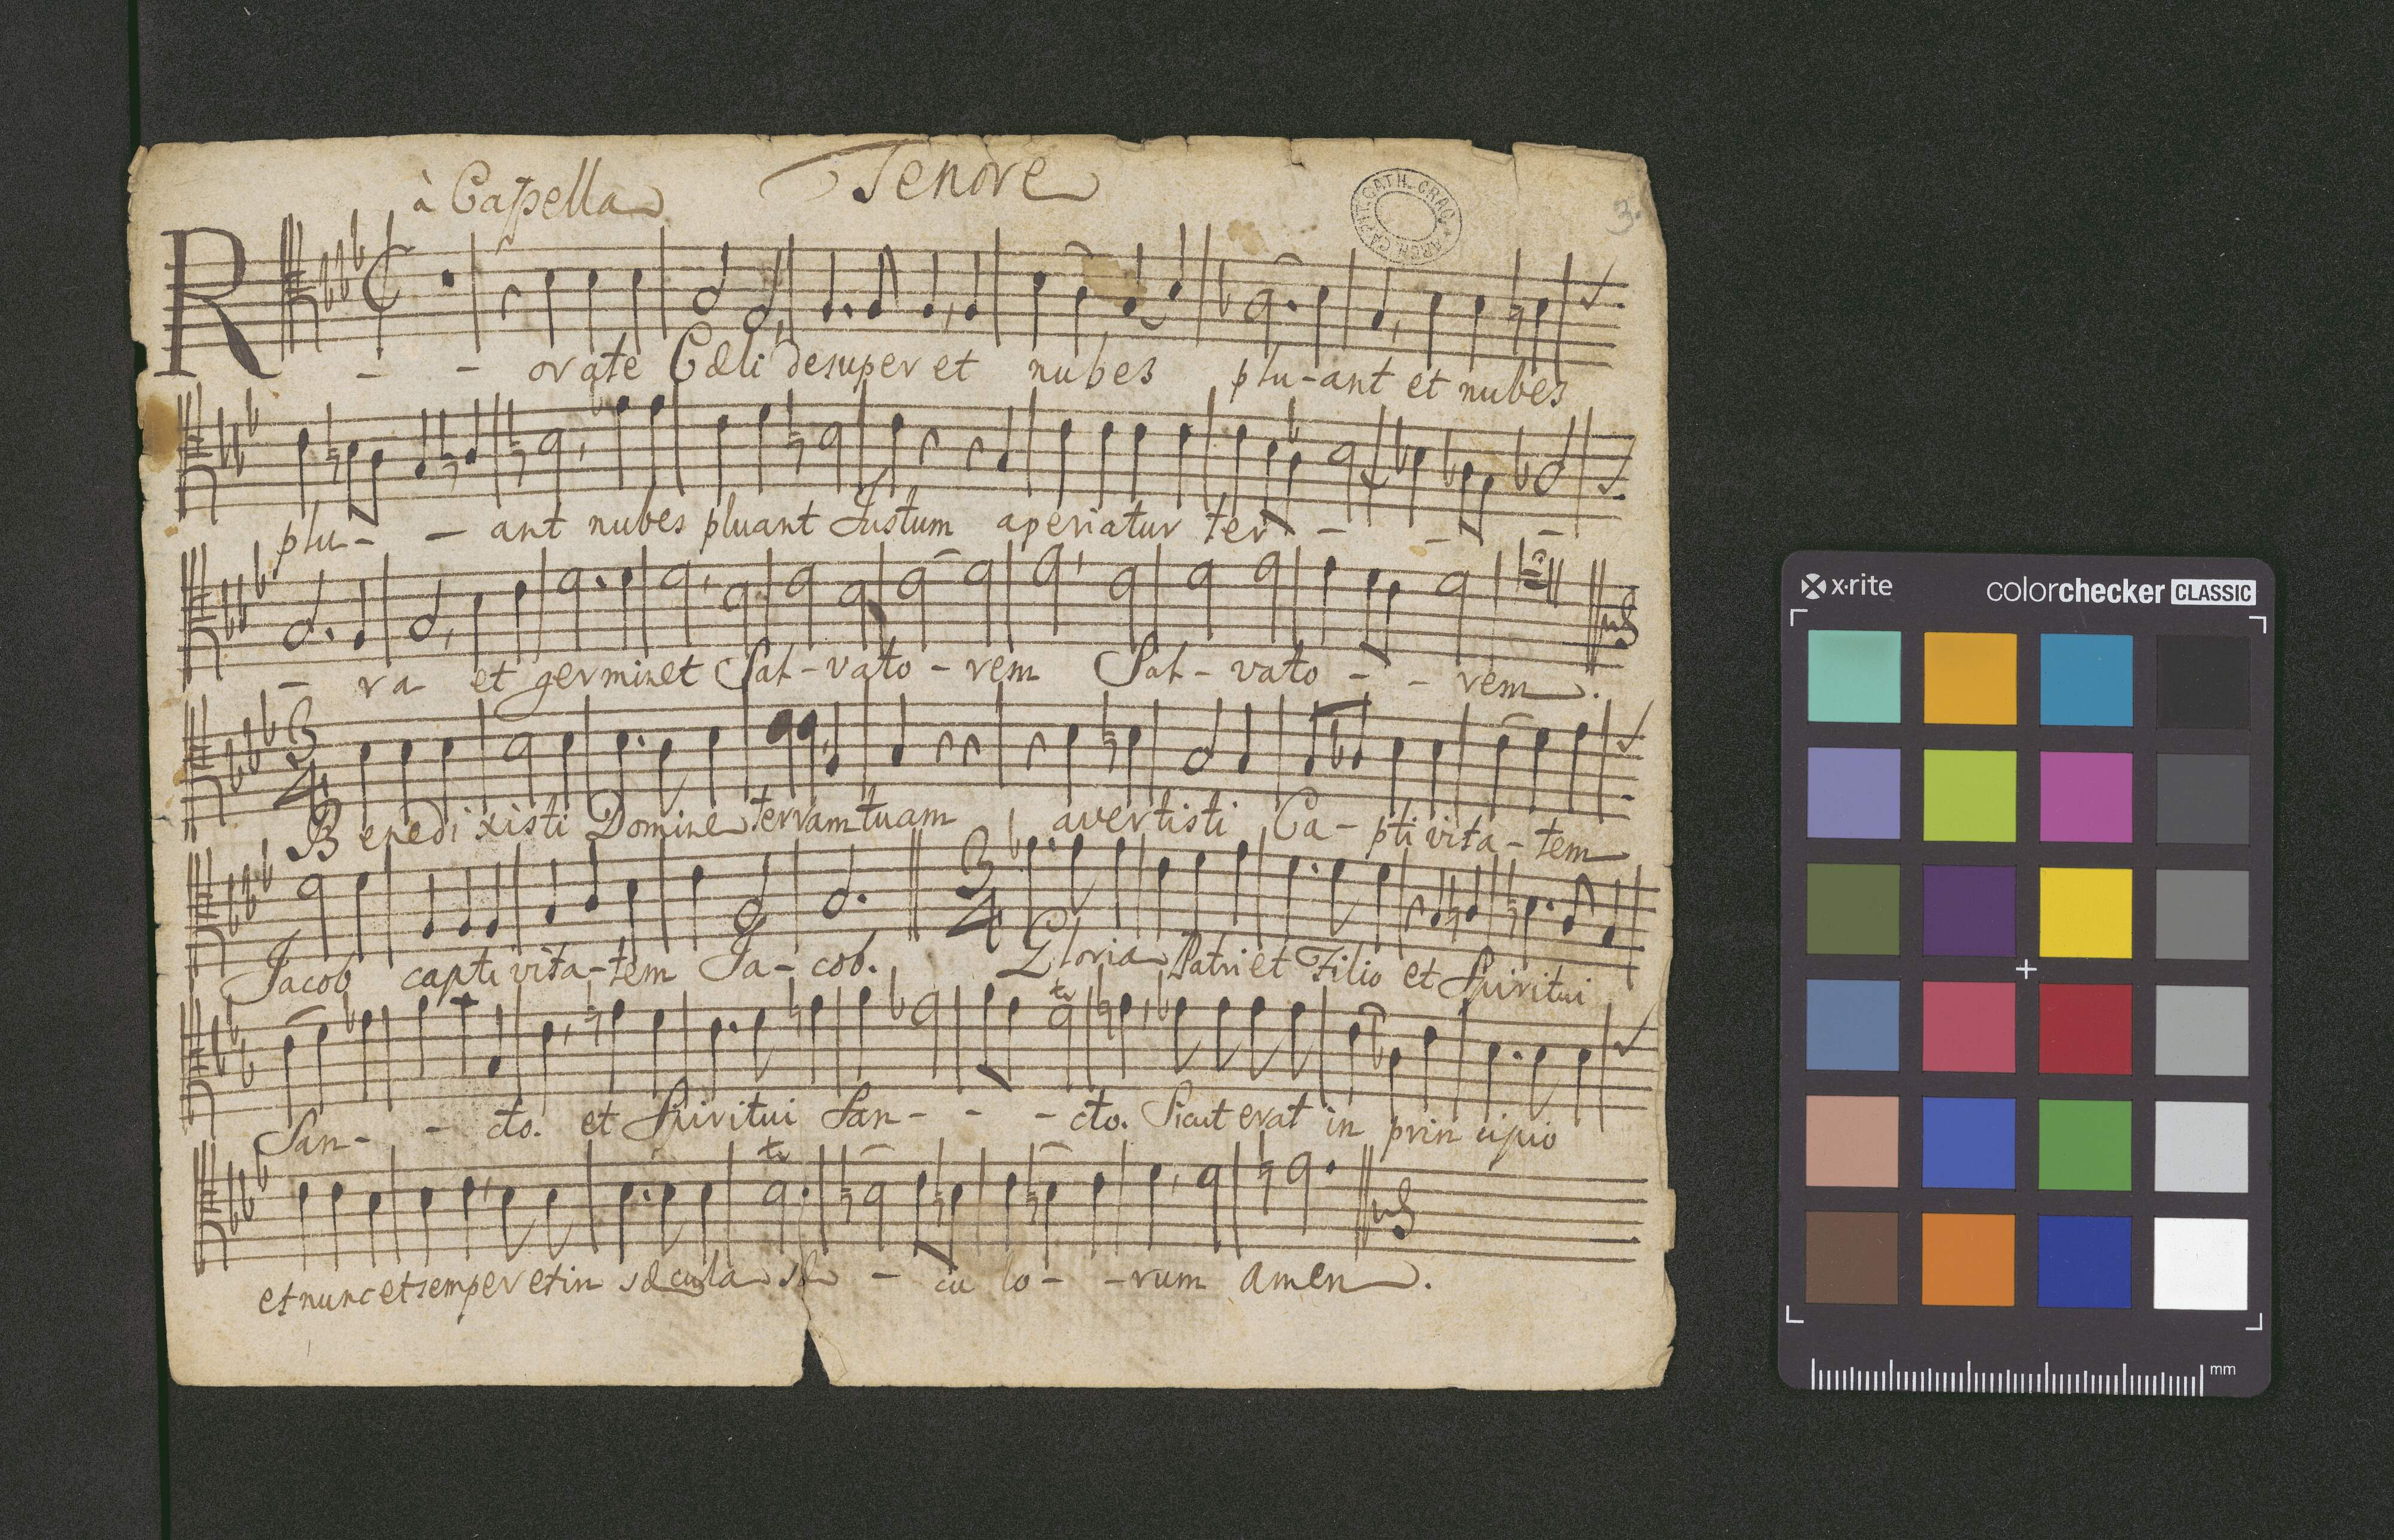 à Capella Tenore
ARCH. CAPIT. CATH. CRAC.
3.
R - - orate Cæli desuper et nubes plu-ant et nubes
plu- - ant nubes pluant Justum aperiatur ter - - -
- ra et germinet Sal-vato-rem Sal-vato - - rem.
3
4
Benedixisti Domine terram tuam avertisti Ca-ptivita-tem
3
4
Jacob captivita-tem Ja-cob. Gloria Patri et Filio et Spiritui
tr
San- - cto. et Spiritui San- - - cto. Sicut erat in principio
tr
et nunc et semper et in sæcula sæ - cu lo- -rum amen.
x·rite colorchecker CLASSIC
mm